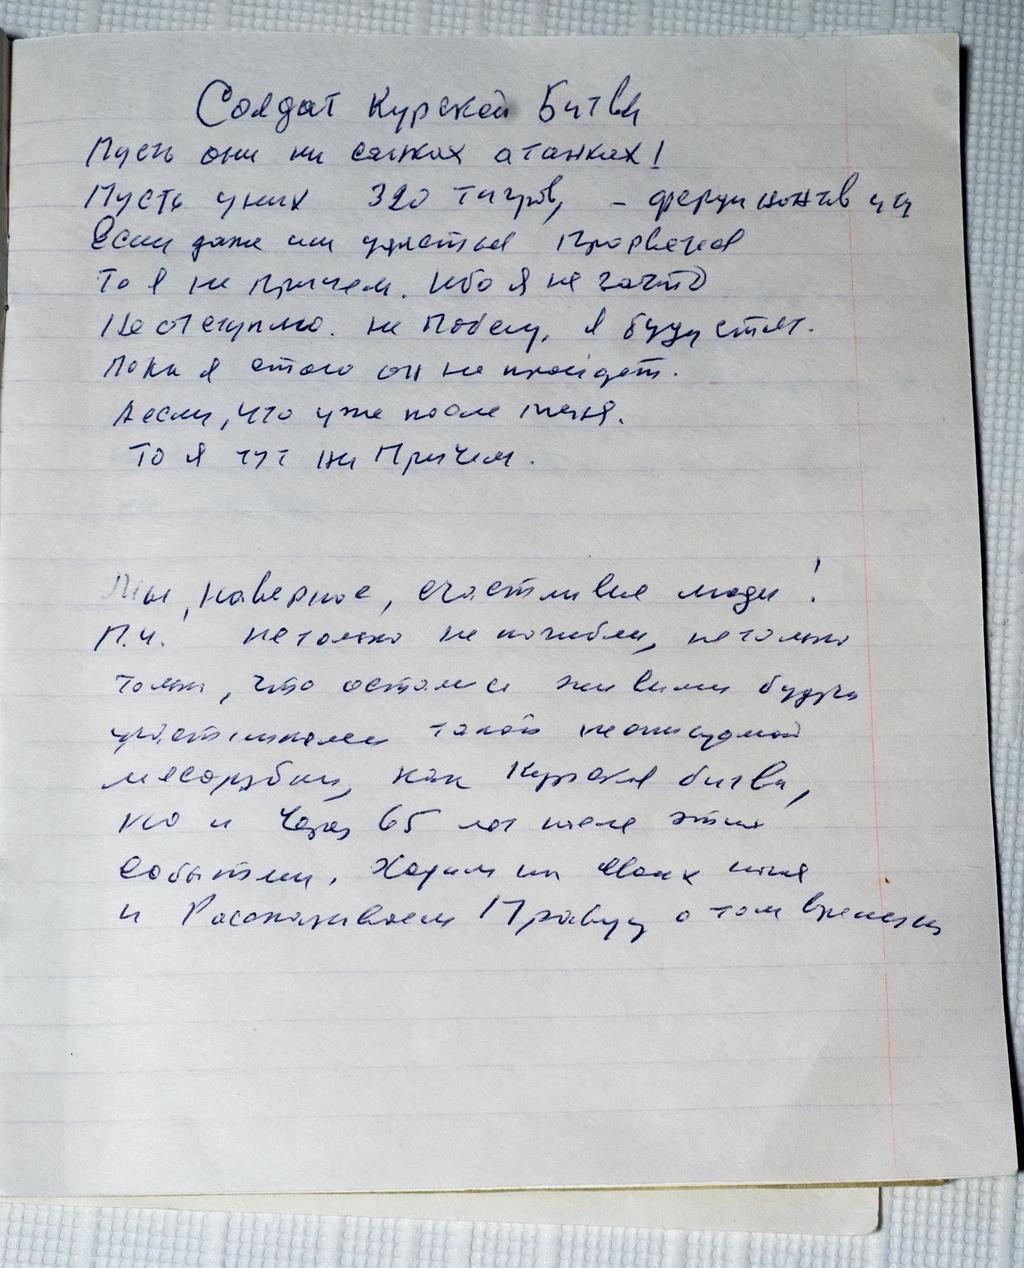 Солдат Курской Битвы
Пусть они на самих а танках!
Пусть у них 320 тигров, - фердинантов
Если даже им удастся Прорвется
То я не причем. Ибо я не
Не отступлю. не Побегу, я буду стоят.
Пока я стою он не пройдет.
А если, что уже после меня.
То я тут ни Причем.
Мы, наверное, счастливые люди!
П.ч. не только не погибли, не только
только, что остались живыми будучи
участниками такой неописуемой
мясорубки, как Курская битва,
но и через 65 лет после этих
событий. Ходим на своих ногах
и Рассказываем Правду о том времени